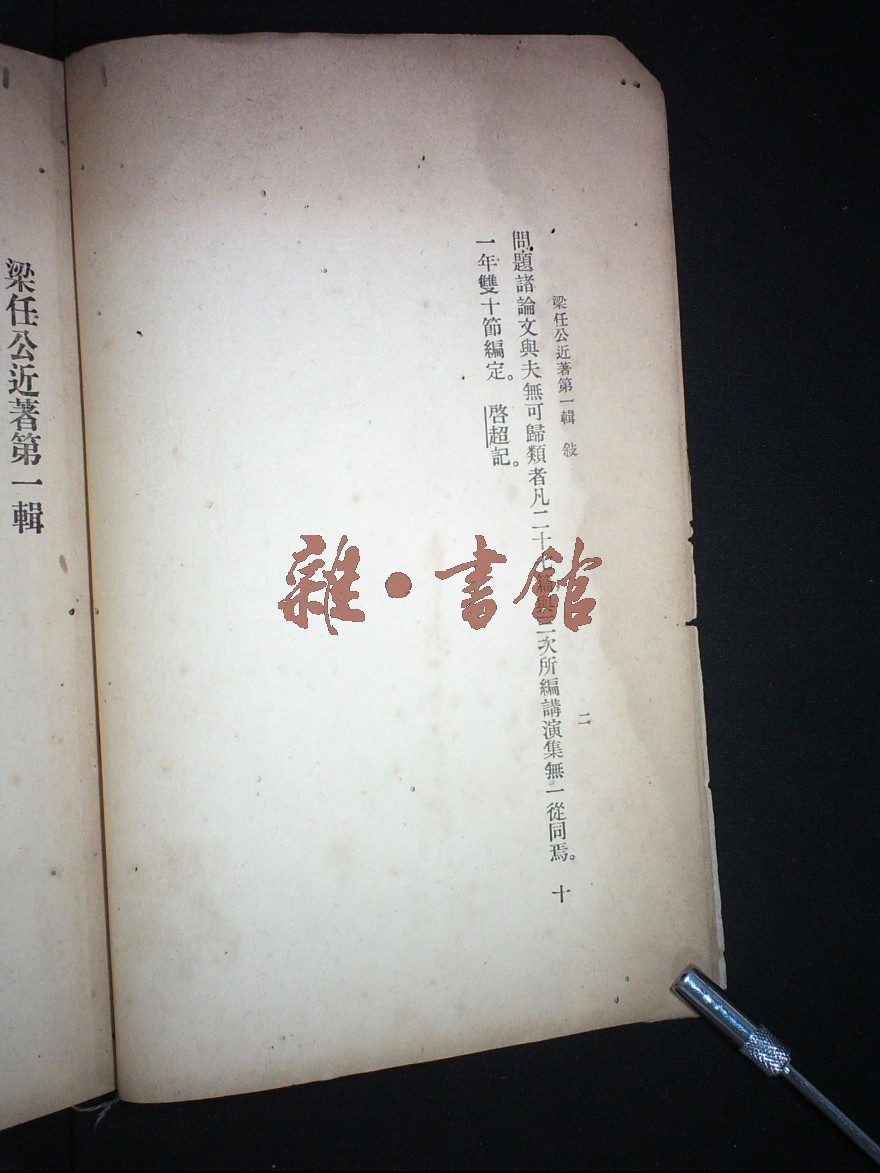 梁任公近著第一輯　敍
二
問題諸論文與夫無可歸類者凡二十篇與二次所編講演集無一從同焉。十
一年雙十節編定。　啓超記。
梁任公近著第一輯
雜·書館